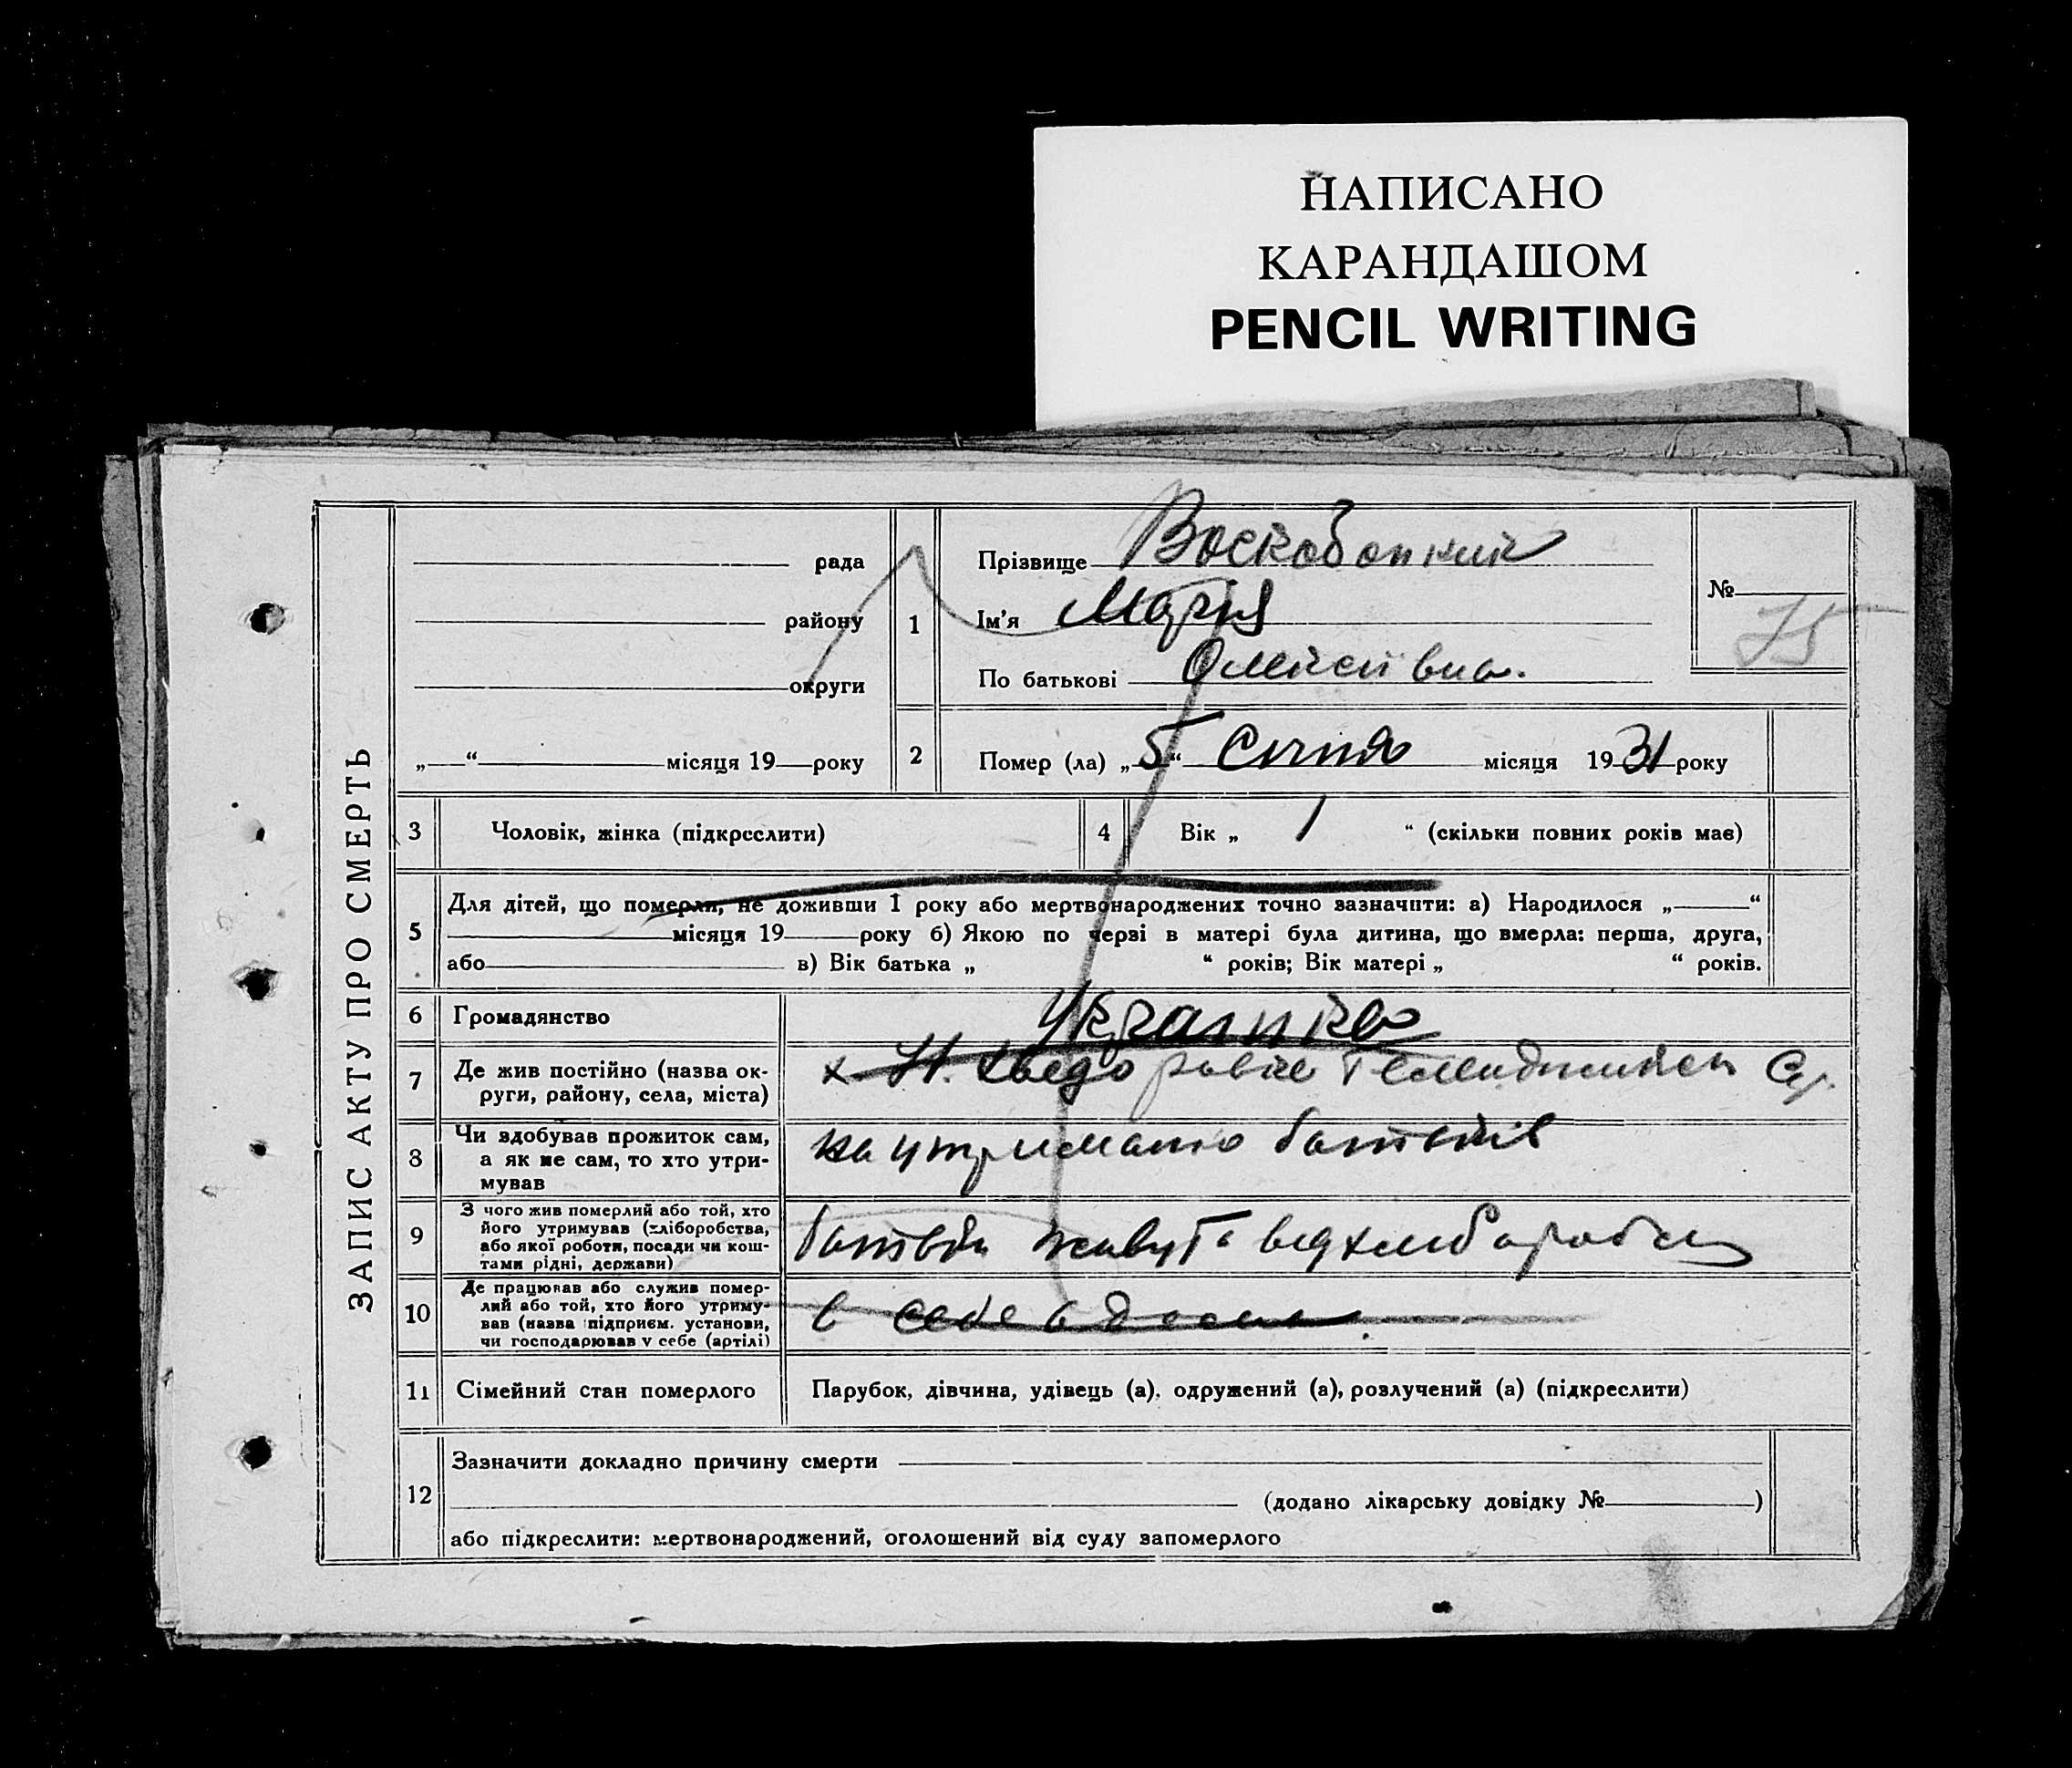 НАПИСАНО
КАРАНДАШОМ
PENCIL WRITING
ЗАПИС АКТУ ПРО СМЕРТЬ
рада
району
округи
„ “ місяця 19 року
1
Прізвище Воскобойник
Ім'я Марія
По батькові Олексіївна.
№ 75
2 Помер (ла) „ 5 “ Січня місяця 1931 року
3 Чоловік, жінка (підкреслити)
4 Вік „ 1 “ (скільки повних років має)
5
Для дітей, що померли, не доживши 1 року або мертвонароджених точно зазначити: а) Народилося „ “
місяця 19 року б) Якою по черзі в матері була дитина, що вмерла: перша, друга,
або в) Вік батька „ “ років; Вік матері „ “ років.
6 Громадянство Українка
7 Де жив постійно (назва ок-
руги, району, села, міста)
х. Н. Хведоровка
8 Чи здобував прожиток сам,
а як не сам, то хто утри-
мував
на утриманю батьків
9 З чого жив померлий або той, хто
його утримував (хліборобства,
або якої роботи, посади чи кош-
тами рідні, держави)
батьки живуть від хліборобства
10 Де працював або служив помер-
лий або той, хто його утриму-
вав (назва підприєм. установи,
чи господарював у себе (артілі)
в себе вдома.
11 Сімейний стан померлого Парубок, дівчина, удівець (а), одружений (а), розлучений (а) (підкреслити)
12
Зазначити докладно причину смерти
(додано лікарську довідку № )
або підкреслити: мертвонароджений, оголошений від суду запомерлого